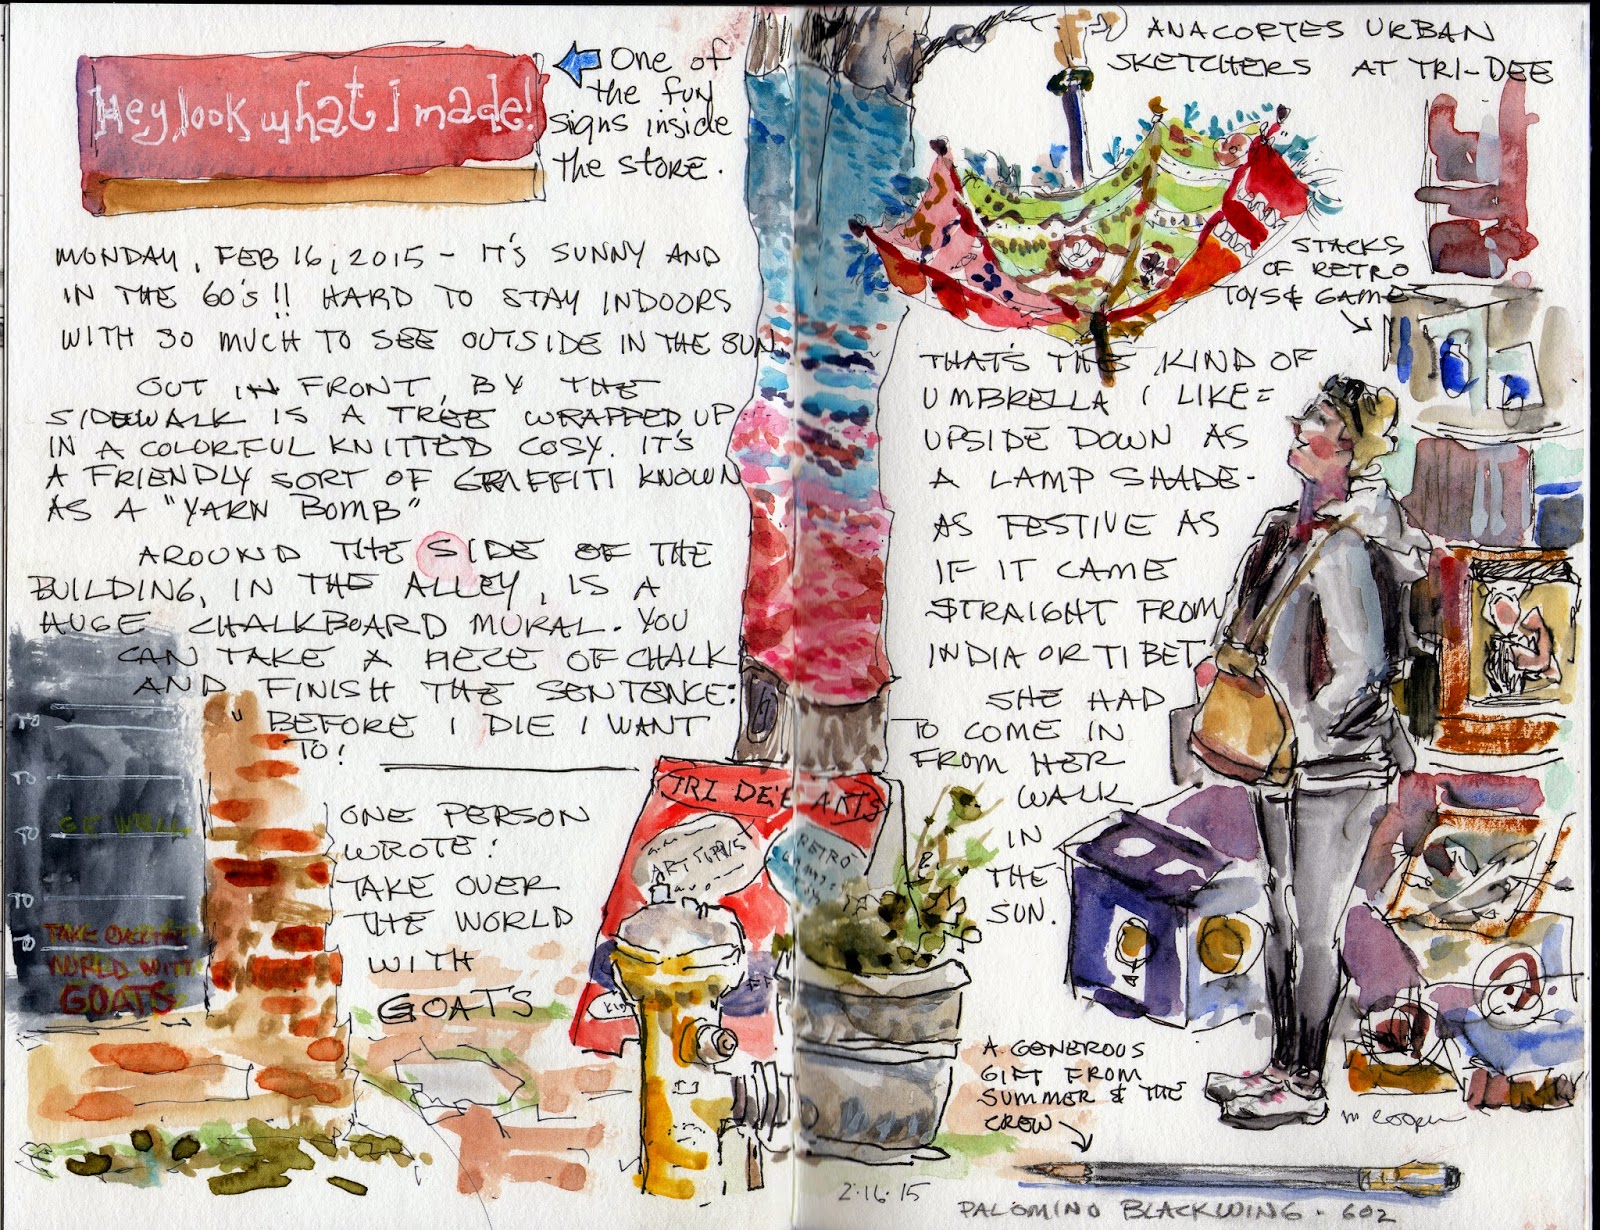 Hey look what I made!
One of
the fun
signs inside
the store.
MONDAY, FEB 16, 2015 - IT'S SUNNY AND
IN THE 60'S!! HARD TO STAY INDOORS
WITH SO MUCH TO SEE OUTSIDE IN THE SUN.
OUT IN FRONT, BY THE
SIDEWALK IS A TREE WRAPPED UP
IN A COLORFUL KNITTED COSY. IT'S
A FRIENDLY SORT OF GRAFFITI KNOWN
AS A "YARN BOMB"
AROUND THE SIDE OF THE
BUILDING, IN THE ALLEY, IS A
HUGE CHALKBOARD MURAL. YOU
CAN TAKE A PIECE OF CHALK
AND FINISH THE SENTENCE:
"BEFORE I DIE I WANT
TO!
ONE PERSON
WROTE:
TAKE OVER
THE WORLD
WITH
GOATS
TAKE OVER THE
WORLD WITH
GOATS
TRI DEE ARTS
ART
RETRO
ANACORTES URBAN
SKETCHERS AT TRI-DEE
STACKS
OF RETRO
TOYS & GAMES
THAT'S THE KIND OF
UMBRELLA I LIKE =
UPSIDE DOWN AS
A LAMP SHADE -
AS FESTIVE AS
IF IT CAME
STRAIGHT FROM
INDIA OR TIBET
SHE HAD
TO COME IN
FROM HER
WALK
IN
THE
SUN.
A GENEROUS
GIFT FROM
SUMMER & THE
CREW
M Cooper
2.16.15
PALOMINO BLACKWING - 602